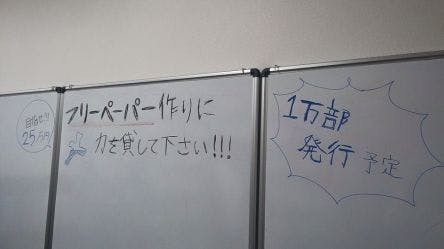 目指せ!!
25万円
フリーペーパー作りに
力を貸して下さい!!!
1万部
発行予定